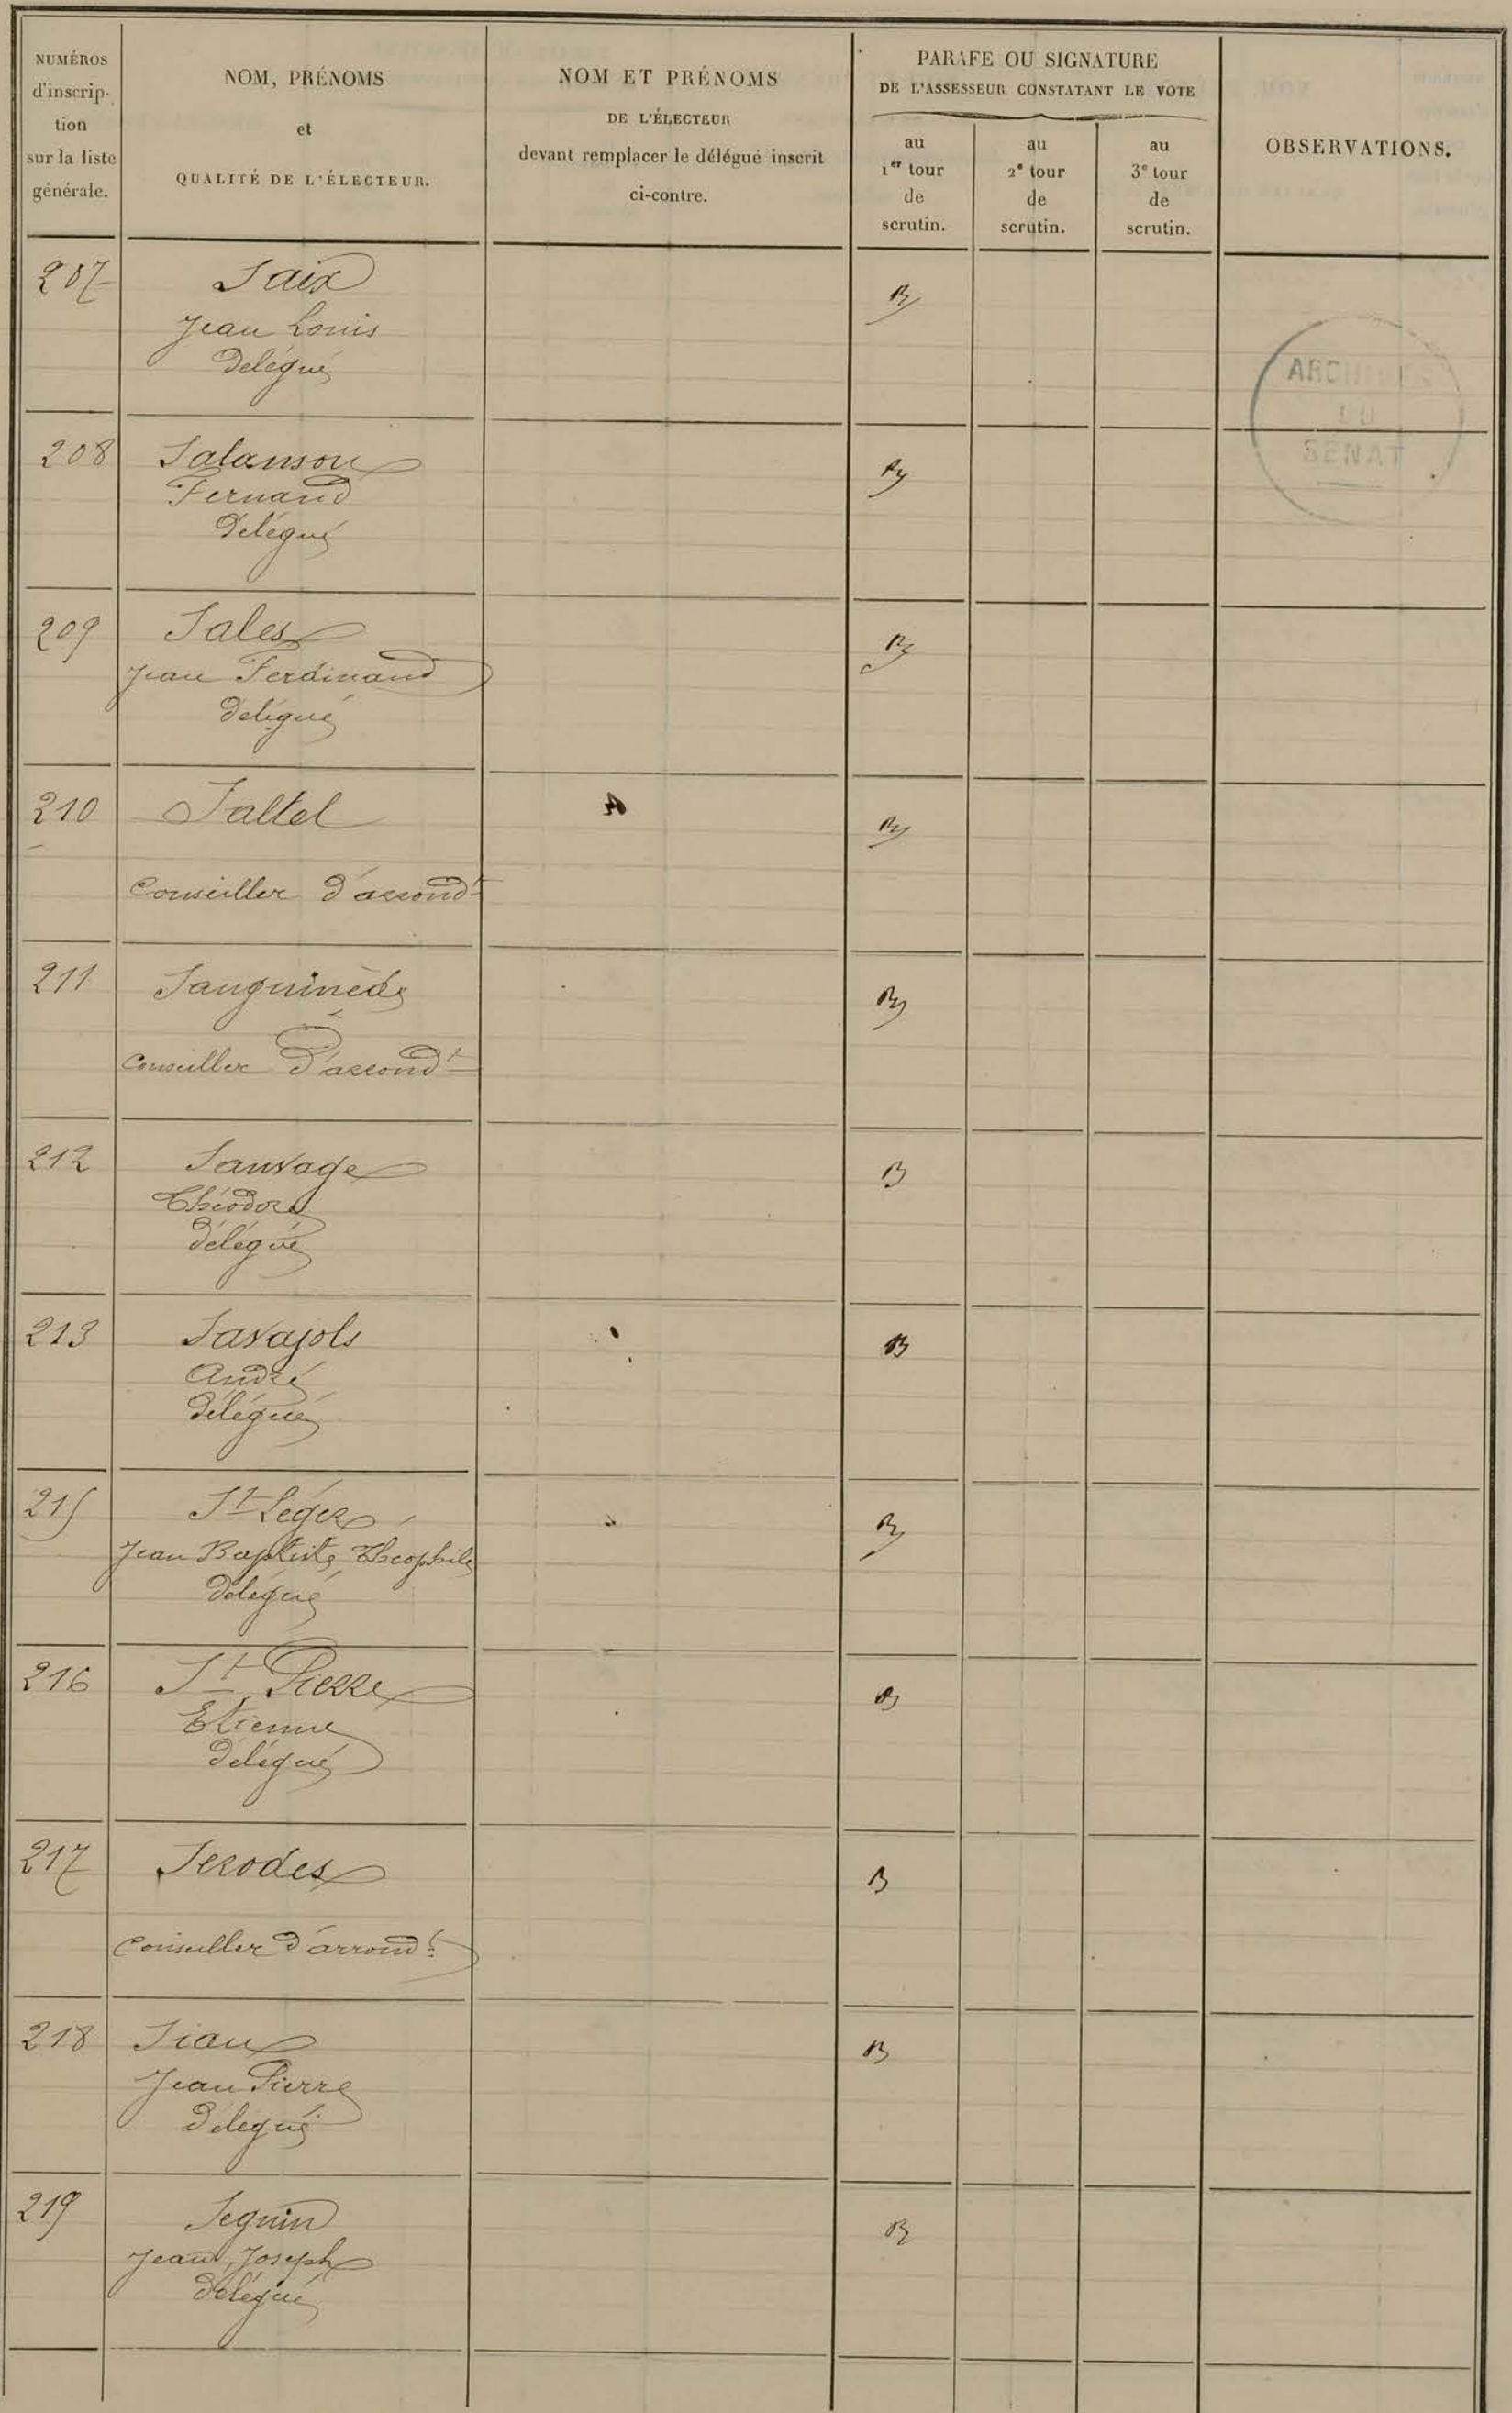 NUMÉROS
d'inscrip-
tion
sur la liste
générale.
NOM, PRÉNOMS
et
QUALITÉ DE L'ÉLECTEUR.
NOM ET PRÉNOMS
DE L'ÉLECTEUR
devant remplacer le délégué inscrit
ci-contre.
PARAFE OU SIGNATURE
DE L'ASSESSEUR CONSTATANT LE VOTE
au
1er tour
de
scrutin.
au
2e tour
de
scrutin.
au
3e tour
de
scrutin.
OBSERVATIONS.
207 Saix
Jean Louis
Délégué
ARCHIVES
DU
SENAT
208 Salanson
Fernand
Délégué
209 Sales
Jean Ferdinand
délégué
210 Saltel
Conseiller d'arrondt
211 Sanguinède
Conseiller d'arrondt
212 Sauvage B
Théodore
délégué
213 Savajols B
André
délégué
215 St Léger
Jean Baptiste Théophile
délégué
216 St Pierre B
Etienne
délégué
217 Serodes B
Conseiller d'arrondt
218 Siau B
Jean Pierre
délégué
219 Seguin B
Jean Joseph
délégué